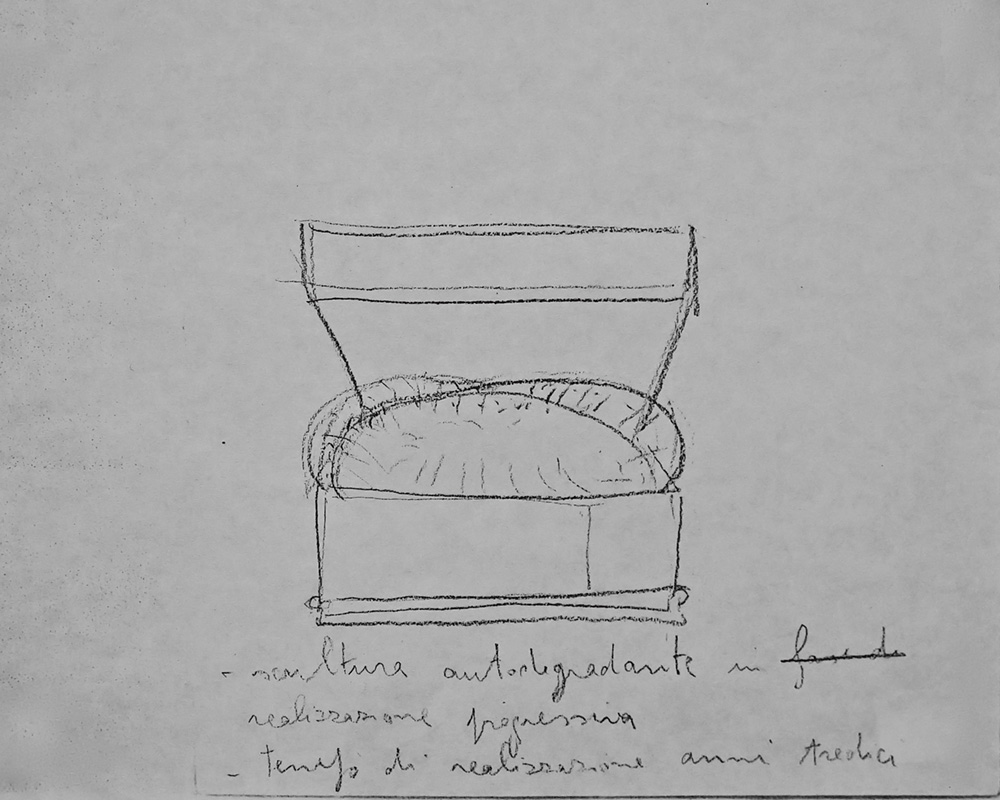 - scultura autodegradante in fase di
realizzazione progressiva
- tempo di realizzazione anni tredici